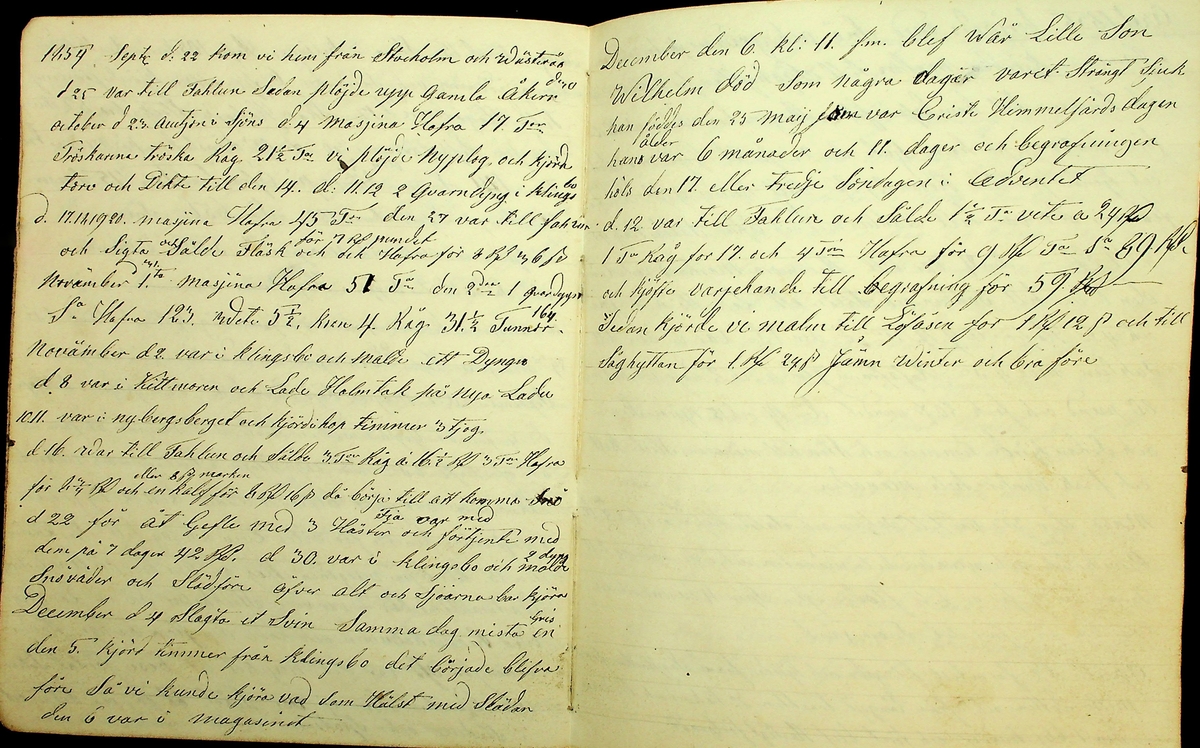 1859 Septr d: 22 kom vi hem från Stockholm och Wästerås
d 25 var till Fahlun Sedan plöjde upp Gamla Åkern
october d 23. Auctjon i Sjöns d 4 masjina Hafra 17. Tor
Tröskanna tröska Råg 21½ Tor vi plöjde Nyplog och kjörd
torv och Dikte till den 14. d: 11.12 2 Qvarndyng i Klingsbo
d. 17.18.19.20. masjina Hafra 45 Tor den 27 var till Fahlun
för 7 Rß pundet
och Sigta och Sälde Fläsk och och Hafra för
Novämber 1.sta masjina Hafra 51 Tor den 2dra 1
164
Sa Hafra 123. wete 5½, korn 4. Råg 31½ Tunnor.
Novämber d 2. var i Klingsbo och malde ett Dyngn
d. 8 var i och Lade Halmtak på nya Ladu
10.11. var i nybergsberget och kjörde ihop timmer 3 tjog.
d 16. war till Fahlun och Sälde 3 Tor Råg á 16½ Rß 3 Tor Hafra
eller marken
för och en kalf för 8 Rß 16 ß då börja till att komma Snö
Fja var med
d 22 för åt Gefle med 3 Hästar och förtjente med
dem på 7 dagar 42 Rß. d 30. var i Klingsbo och malde 2 dyng
Snöväder och Slädföre äfver alt och Sjöarna bar kjöra
December d 4 Slagta et Svin Samma dag mista en Gris
den 5. kjörd timmer från Klingsbo det började blefva
före Så vi kunde kjöra vad som Hälst med Slädan
den 6 var i magasinet
December den 6. kl: 11. fm. blef Wår Lille Son
Wilhelm död Som några dagar varet Strängt Sjuk
han föddes den 25 Maij som var Criste Himmelfärds dagen
hans ålder var 6 månader och 11. dagar och begrafningen
höls den 17. eller tredje Söndagen i Adventet
d. 12 var till Fahlun och Sälde 1½ Ta vete a 24 Rß
1 Ta Råg för 17. och 4 Tor Hafra för 9 Rß Ta Sa 89 Rß
och kjöpte varjehanda till begrafning för 59 Rß
Sedan kjörde vi malm till Löfåsen för 1 Rß 12 ß och till
Såghyttan för 1. Rß 24 ß Jämn Winter och bra före